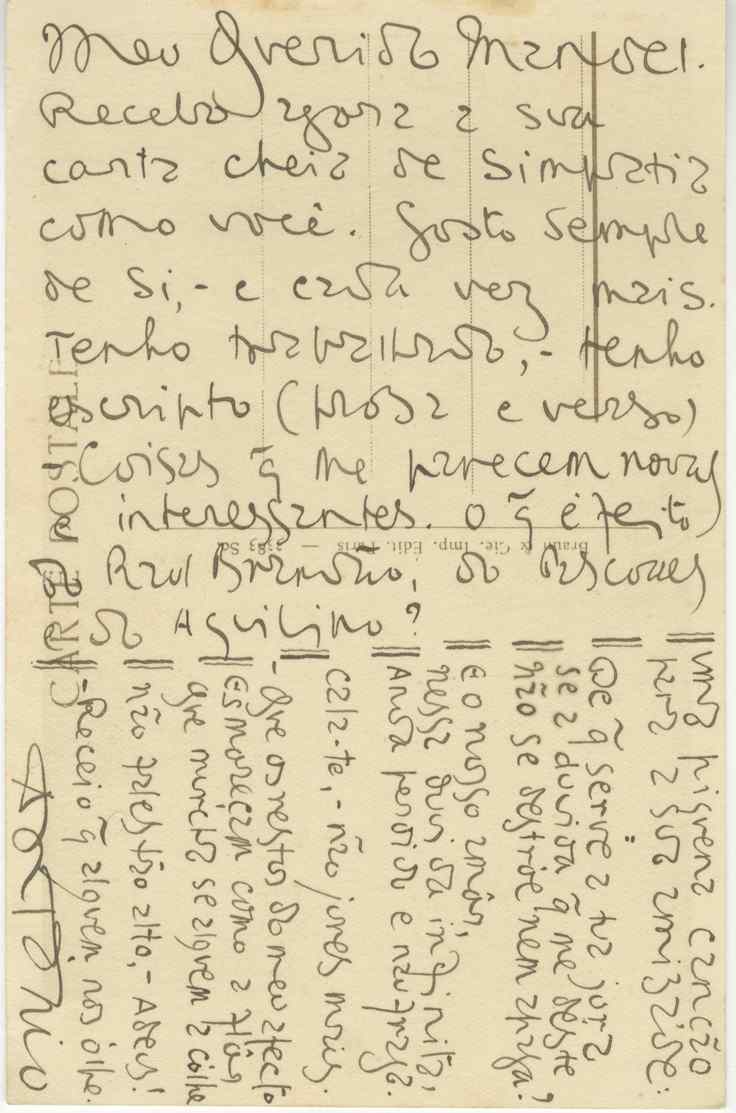 Meu Querido Manoel.
Recebo agora a sua
carta cheia de simpatia
como você. Gosto sempre
de si,- e cada vez mais.
Tenho trabalhado,- tenho
escripto (prosa e verso)
Coisas q̃ me parecem novas
e interessantes. O q̃ é feito
do Raul Brandão, do Pascoaes
e do Aquilino?
Uma piquena canção
para a sua amizade:
De q̃ serve a tua jura
se a duvida q̃ me déste
não se destróe nem apaga?
E o nosso amôr,
nessa duvida infinita,
Anda perdido e naufraga.
Cala-te,- não jures mais.
- Que os restos do meu afecto
Esmoreçam como a flôr
que murcha se alguem a colhe
não fales tão alto,- Adeus!
- Receio q̃ alguem nos ólhe.
Antonio
CARTE POSTALE
Braun & Cie. Imp. Edit. Paris —